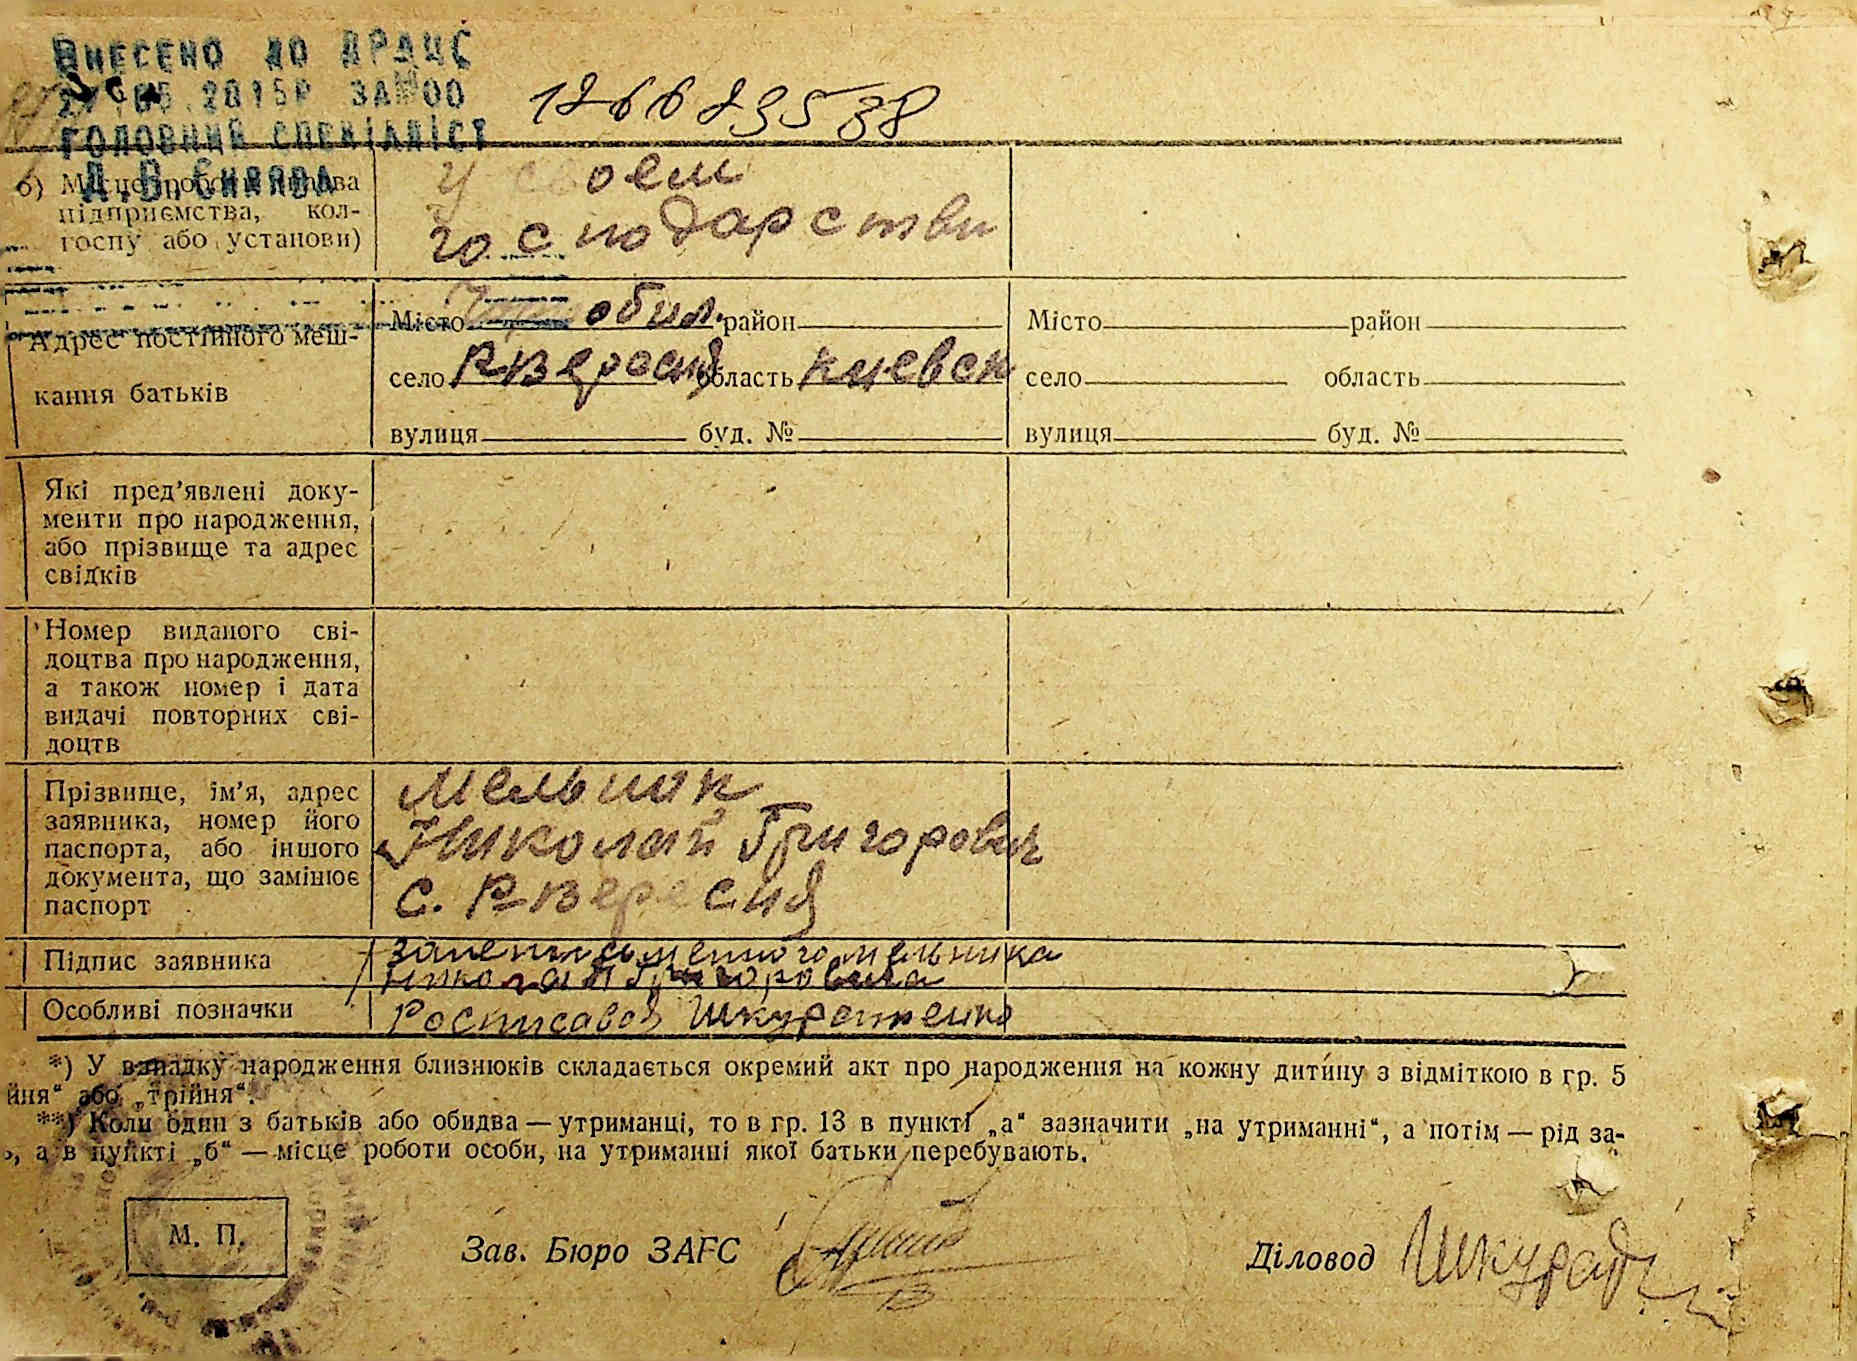 ВНЕСЕНО ДО ДРАЦС
2015Р ЗА №00
ГОЛОВНИЙ СПЕЦІАЛІСТ
Д.В.
126623538
б) Місце роботи (назва
підприємства, кол-
госпу або установи)
у своем
господарстви
Адрес постійного меш-
кання батьків
Місто Чорнобил. район
село Р-Вересня область Киевск
вулиця буд. №
Місто район
село область
вулиця буд. №
Які пред'явлені доку-
менти про народження,
або прізвище та адрес
свідків
Номер виданого сві-
доцтва про народження,
а також номер і дата
видачі повторних сві-
доцтв
Прізвище, ім'я, адрес
заявника, номер його
паспорта, або іншого
документа, що замінює
паспорт
Мельник
Николай Григорович
с. Р-Вересня
Підпис заявника
за неписьменного мельника
николая Григоровича
Особливі позначки
Росписавсь Шкуратенко
*) У випадку народження близнюків складається окремий акт про народження на кожну дитину з відміткою в гр. 5
йня“ або „трійня“.
**) Коли один з батьків або обидва — утриманці, то в гр. 13 в пункті „а“ зазначити „на утриманні“, а потім — рід за-
, а в пункті „б“ — місце роботи особи, на утриманні якої батьки перебувають.
М. П.
Зав. Бюро ЗАГС
Діловод Шкурат